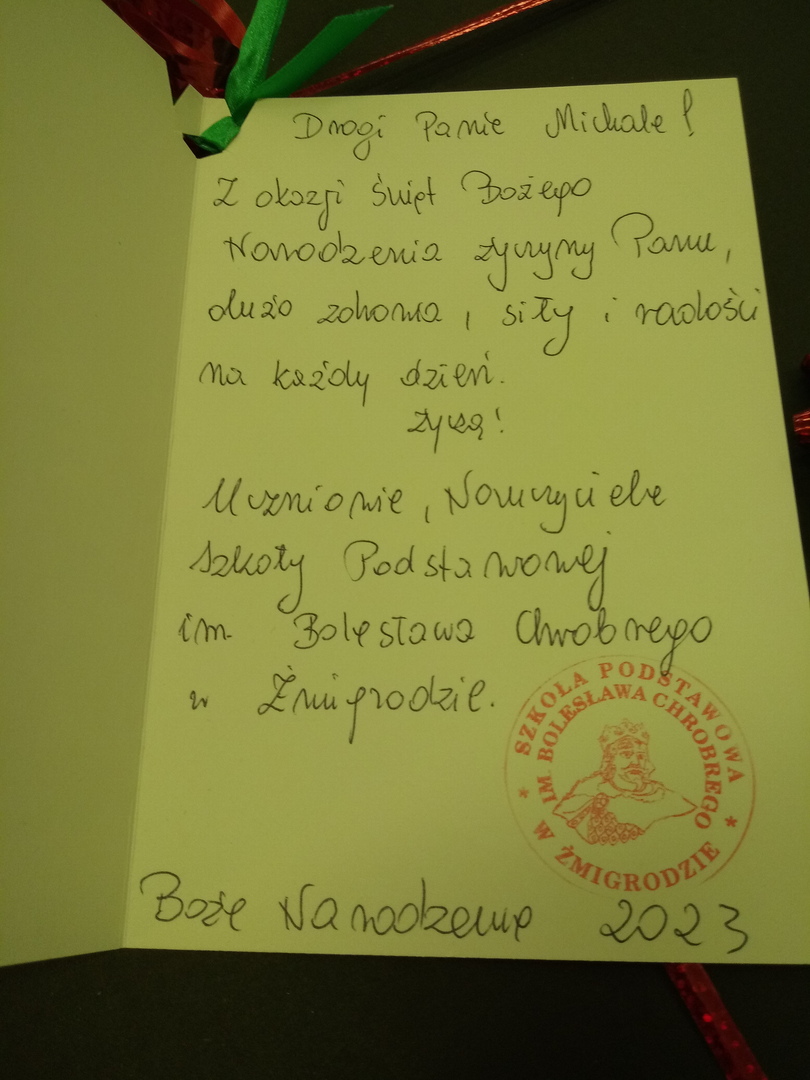 Drogi Panie Michale!
Z okazji świąt Bożego
Narodzenia życzymy Panu,
dużo zdrowia, siły i radości
na każdy dzień.
życzą!
Uczniowie, Nauczyciele
Szkoły Podstawowej
im. Bolesława Chrobrego
w Żmigrodzie.
SZKOŁA PODSTAWOWA
IM. BOLESŁAWA CHROBREGO
* W ŻMIGRODZIE *
Boże Narodzenie 2023